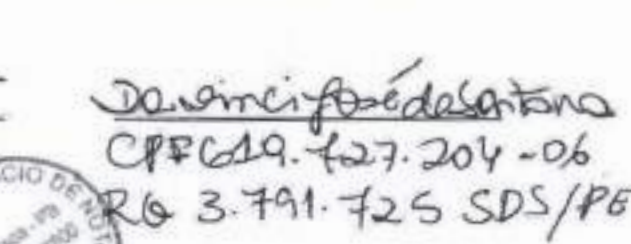 Davinci José de Santana
CPF 619.727.204-06
RG 3.791.725 SDS/PE
CIO DE NOT